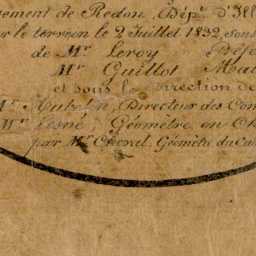 sement de Redon, Dép.t d'Ill
ur le terrein le 2 Juillet 1832, sous
de Mr Leroy Préfe
Mr Guillot Mai
et sous la direction de
Mr Directeur des Con
Mr Lesné Géomètre en Ch
par Mr Géomètre du Cad